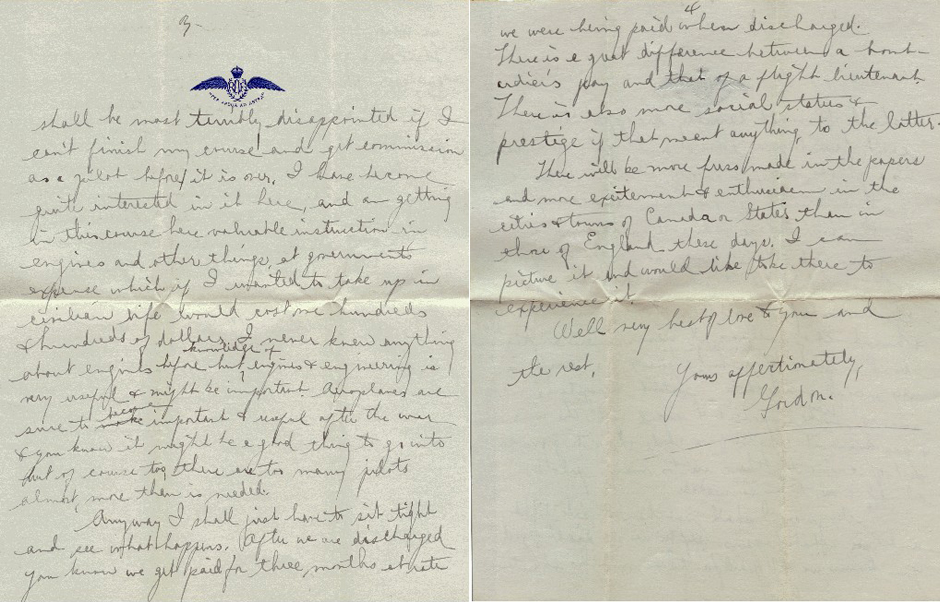 3-
PER ARDUA AD ASTRA
shall be most terribly disappointed if I
can't finish my course and get commission
as a pilot before it is over. I have become
quite interested in it here, and am getting
in this course here valuable instruction in
engines and other things, at governments
expense which if I wanted to take up in
civilian life would cost me hundreds
& hundreds of dollars. I never knew anything
about engines before but knowledge of engines & engineering is
very useful & might be important. Aeroplanes are
sure to become important & useful after the war
& you know it might be a good thing to go into
but of course too there are too many pilots
almost, more than is needed.
Anyway I shall just have to sit tight
and see what happens. After we are discharged
you know we get paid for three months at rate
4
we were being paid when discharged.
There is a great difference between a bomb-
adier's pay and that of a flight lieutenant.
There is also more social status &
prestige if that meant anything, to the latter.
There will be more fuss made in the papers
and more exitement & enthusiasm in the
cities & towns of Canada or States than in
those of England these days. I can
picture it and would like to be there to
experience it.
Well very best of love to you and
the rest,
Yours affectionately,
Gordon.